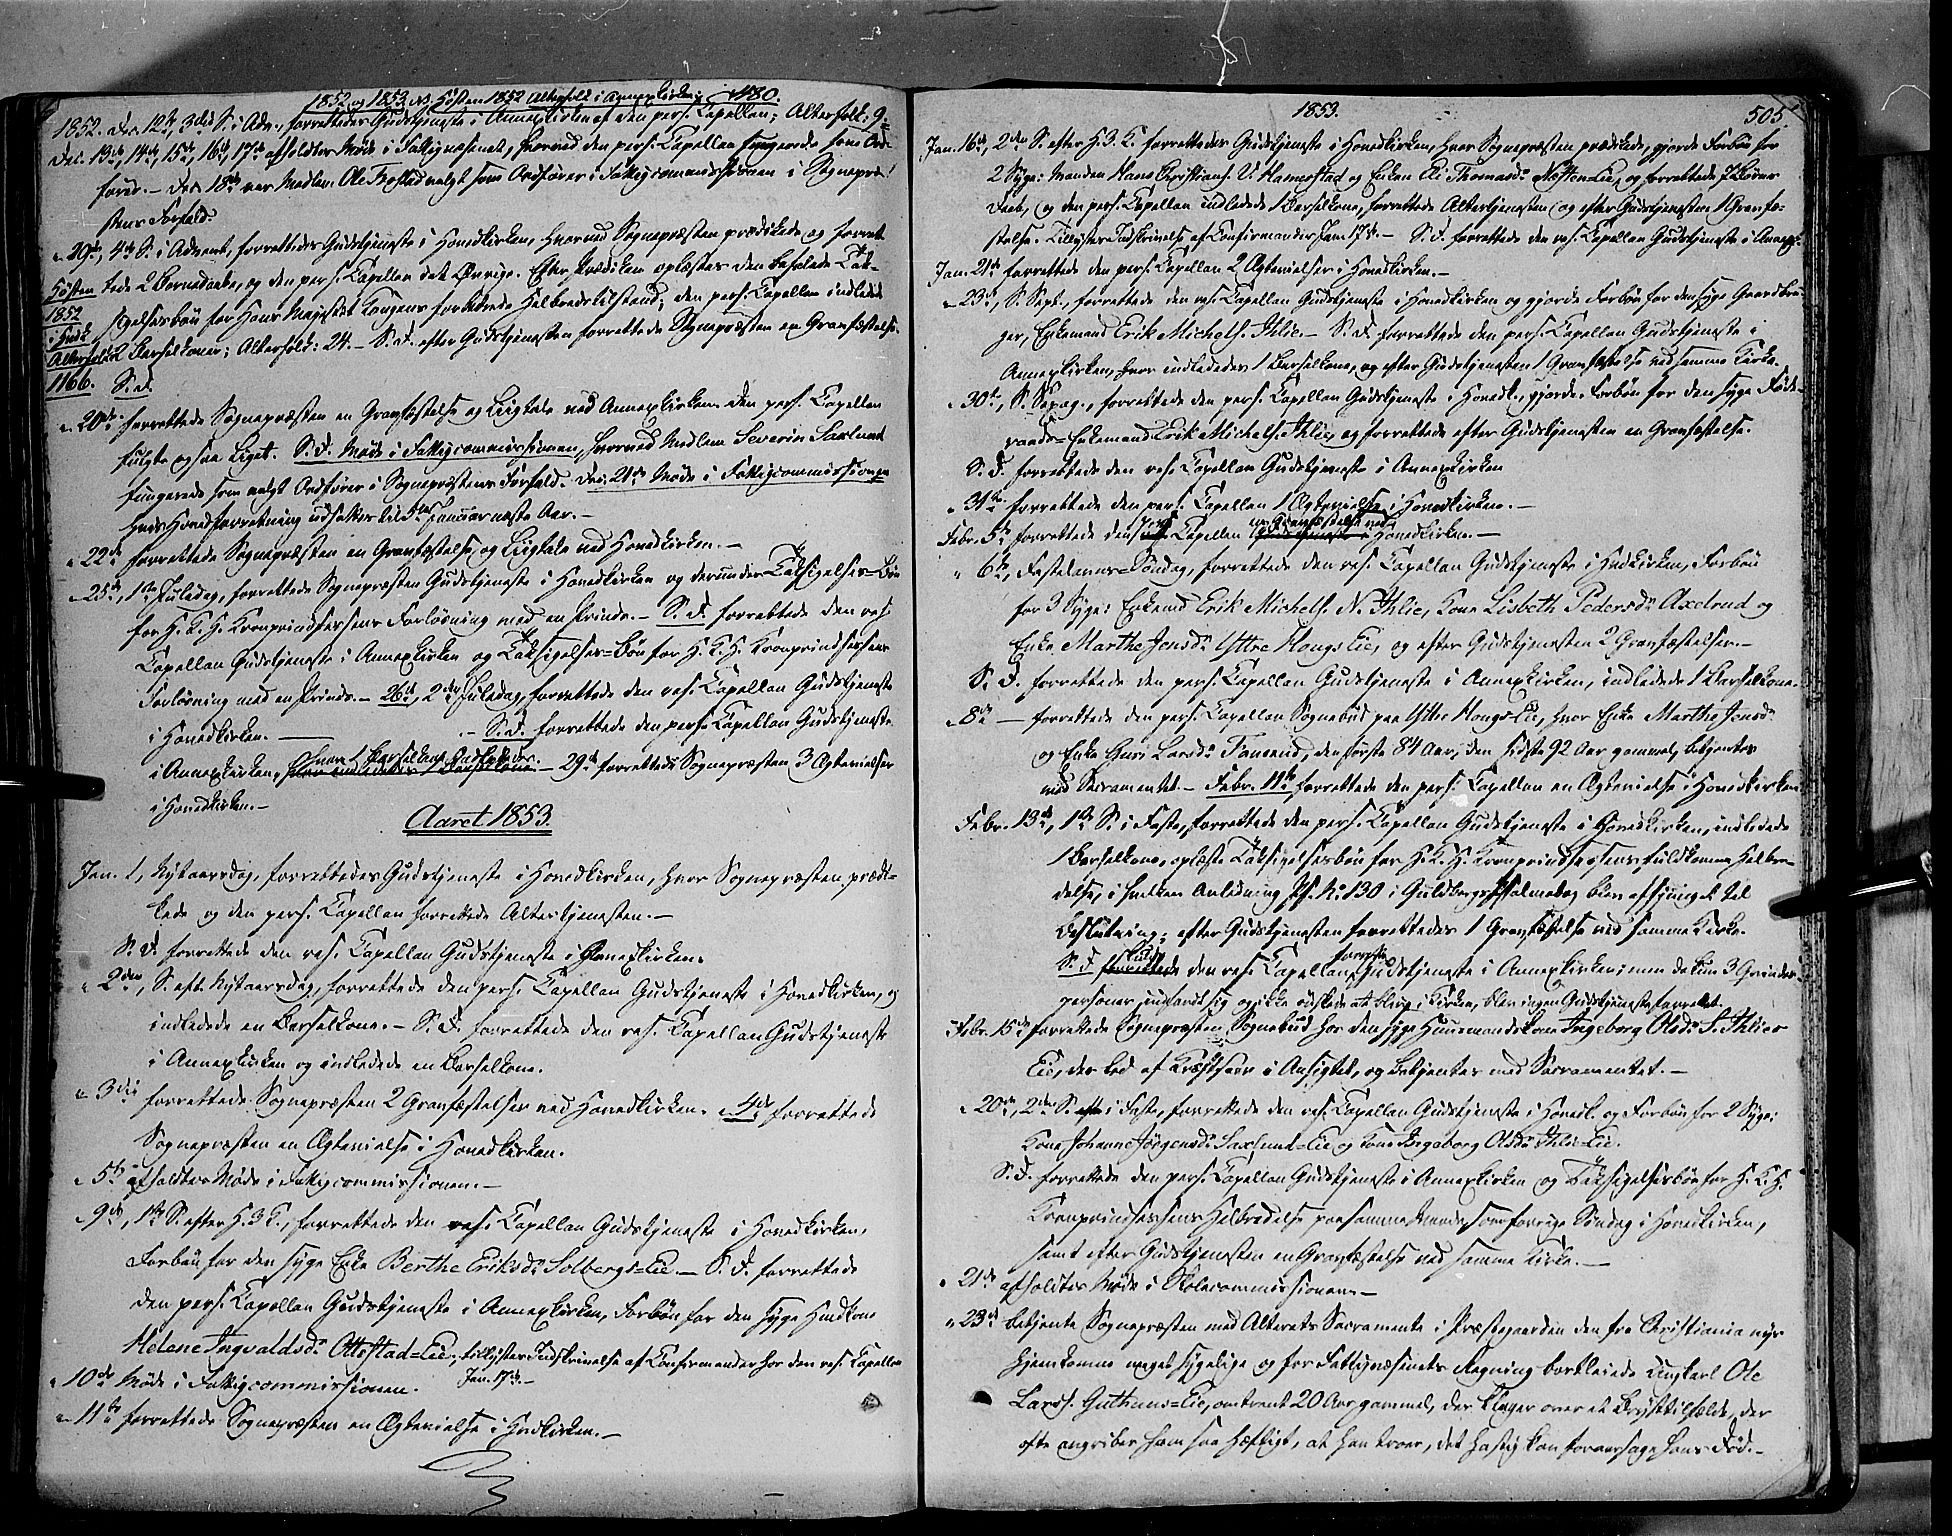 1852 og 1853. NB. Høsten 1852 Altergfolk i Annexkirken 480.
1852. Dec. 12te, 3die S. i Adv., forrettedes Gudstjeneste i Annexkirken af den pers. Capellan; Alterfolk: 9.
Dec. 13de, 14de, 15de, 16de, 17de afholdtes Møde i Fattigvæsenet, hvorved den pers. Capellan fungerede som Ord-
fører. – Den 18de var Medlem Ole Træstad valgt som Ordfører i Fattigcommissionen i Sognepræ-
stens Forfald.
" 19de, 4de S. i Advent, forrettedes Gudstjeneste i Hovedkirken, hvorved Sognepræsten prædikede og forret-
Høsten tede 2 Barnedaabe, og den pers. Capellan det Øvrige. Efter Prædiken oplæstes den befalede Tak-
1852 sigelsesbøn for Hans Majestæt Kongens forbedrede Helbredstilstand; den pers. Capellan indledede
i Hvdk.
Alterfolk 2 Barselkoner; Alterfolk: 24. – S.D. efter Gudstjenesten forrettede Sognepræsten en Gravfæstelse.
1166. S.D.
" 20de forrettede Sognepræsten en Gravfæstelse og Liigtale ved Annexkirken. Den pers. Capellan
fulgte ogsaa Liget. S.D. Møde i Fattigcommissionen, hvorved Medlem Severin Saxlund
fungerede som valgt Ordfører i Sognepræstens Forfald. Dec. 21de Møde i Fattigcommissionen
hvis Hovedforretning udsattes til Januar næste Aar. –
" 22de forrettede Sognepræsten en Gravfæstelse og Liigtale ved Hovedkirken. –
" 25de, 1ste Juledag, forrettede Sognepræsten Gudstjeneste i Hovedkirken og derunder Taksigelses=Bøn
for H. K. H. Kronprindsessens Forløsning med en Prinds. – S.D. forrettede den res.
Capellan Gudstjeneste i Annexkirken og Taksigelses=Bøn for H. K. H. Kronprindsessens
Forløsning med en Prinds. – 26de, 2den Juledag, forrettede den res. Capellan Gudstjeneste
i Hovedkirken. – S.D. forrettede den pers. Capellan Gudstjeneste
hvor 1 Barselkone indlededes.
i Annexkirken, hvor indlededes 1 Barselkone – 29de forrettede Sognepræsten 3 Ægtevielser
i Hovedkirken. –
Aaret 1853.
Jan. 1, Nytaarsdag, forrettedes Gudstjeneste i Hovedkirken, hvor Sognepræsten prædi-
kede og den pers. Capellan forrettede Altertjenesten. –
S. D. forrettede den res. Capellan Gudstjeneste i Annexkirken.
" 2den, S. eft. Nytaarsdag, forrettede den pers. Capellan Gudstjeneste i Hovedkirken, og
indledede en Barselkone. – S. D. forrettede den res. Capellan Gudstjeneste
i Annexkirken og indledede en Barselkone.
" 3die forrettede Sognepræsten 2 Gravfæstelser ved Hovedkirken. " 4de forrettede
Sognepræsten en Ægtevielse i Hovedkirken.
" 5te afholdtes Møde i Fattigcommissionen. –
" 9de, 1ste S. efter H. 3 K., forrettede den res. Capellan Gudstjeneste i Hovedkirken,
Forbøn for den syge Enke Berthe Eriksdr Solbergs=Eie. – S. D. forrettede
den pers. Capellan Gudstjeneste i Annexkirken, Forbøn for den syge Huskone
Helene Ingvaldsdr Ottestad=Eie; tillystes Indskrivelse af Confirmander hos den res. Capellan
Jan. 17de. –
" 10de Møde i Fattigcommissionen.
" 11te forrettede Sognepræsten en Ægtevielse i Hvdkirken. –
1853. 505
Jan. 16de, 2den S. efter H. 3. K. forrettedes Gudstjeneste i Hovedkirken, hvor Sognepræsten prædikede, gjorde Forbøn for
2 Syge: Manden Hans Christians. U. Hammestad og Enken Eli Thomasdr Næsten=Eie, og forrettede 7 Børns
Daab, (og den pers. Capellan indledede 1 Barselkone, forrettede Altertjenesten (og efter Gudstjenesten 1 Gravfæ-
stelse. Tillystes Indskrivelse af Confirmander Jan. 17de. – S. D. forrettede den res. Capellan Gudstjeneste i Annexk.
Jan. 21de forrettede den pers. Capellan 2 Ægtevielser i Hovedkirken. –
" 23de, S. Sept., forrettede den res. Capellan Gudstjeneste i Hovedkirken og gjorde Forbøn for den syge Gaardbru-
ger, Enkemand Erik Michels. Ihlie. – S. D. forrettede den pers. Capellan Gudstjeneste i
Annexkirken, hvor indlededes 1 Barselkone, og efter Gudstjenesten 1 Gravfæstelse ved samme Kirke.
" 30te, S. Sexag., forrettede den pers. Capellan Gudstjeneste i Hovedk., gjorde Forbøn for den syge Føde-
raads=Enkemand Erik Michels. Ihlie, og forrettede efter Gudstjenesten en Gravfæstelse.
S. D. forrettede den res. Capellan Gudstjeneste i Annexkirken
" 31te forrettede den pers. Capellan 1 Ægtevielse i Hovedkirken. –
pers. en Gravfæstelse ved
Febr. 5te forrettede den res. Capellan Gudstjeneste i Hovedkirken. –
" 6te, Fastelavns=Søndag, forrettede den res. Capellan Gudstjeneste i Hvdkirken, Forbøn
for 3 Syge: Enkemd Erik Michels. N. Ihlie, Kone Lisbeth Pedersdr Axelrud og
Enke Marthe Jensdr Yttre Hougs Eie, og efter Gudstjenesten 2 Gravfæstelser. –
S. D. forrettede den pers. Capellan Gudstjeneste i Annexkirken, indledede 1 Barselkone.
" 8de – forrettede den pers. Capellan Sognebud paa Ytter Hougs Eie, hvor Enke Marthe Jensdr
og Enke Guri Larsdr Tansrud, den første 84 Aar, den sidste 92 Aar gammel, betjentes
med Sacramentet. – Febr. 11te forrettede den pers. Capellan en Ægtevielse i Hovedkirken
Febr. 13de, 1ste S. i Faste, forrettede den pers. Capellan Gudstjeneste i Hovedkirken, indledede
1 Barselkone, oplæste Taksigelsesbøn for H. K. H. Kronprindsessens fuldkomne Helbre-
delse, i hvilken Anledning Ps. No 130 i Guldbergs Psalmebog blev afsjunget til
Beslutning; efter Gudstjenesten forrettedes 1 Gravfæstelse ved samme Kirke.
skulde forrette
S. D. forrettede den res. Capellan Gudstjeneste i Annexkirken; men da kun 3
personer indfandt sig og ikke ønskede at blive i Kirken, blev ingen Gudstjeneste forrettet.
Febr. 15de forrettede Sognepræsten Sognebud hos den syge Huusmandskone Ingeborg Olsdr S. Ihlies
Eie, der led af Kræftsaar i Ansigtet, og betjentes med Sacramentet. –
" 20de, 2den S. efte i Faste, forrettede den res. Capellan Gudstjeneste i Hovedk. og Forbøn for 2 Syge:
Kone Johanne Jörgensdr Saxlund=Eie og Kone Ingeborg Olsdr Ihlie=Eie.
S. D. forrettede den pers. Capellan Gudstjeneste i Annexkirken og Taksigelsesbøn for H. K. H.
Kronprindsessens Helbredelse paa samme Maade som forrige Søndag i Hovedkirken,
samt efter Gudstjenesten en Gravfæstelse ved samme Kirke. –
" 21de afholdtes Møde i Skolecommissionen. –
" 23de betjente Sognepræsten med Alterets Sacramente i Præstegaarden den fra Christiania nys
hjemkomne meget sygelige og for Fattigvæsenets Regning bortleiede Ungkarl Ole
Lars. Guthuus=Eie, omtrent 20 Aar gammel, der klager over et Brysttilfælde, der
ofte angriber ham saa hæftigt, at han troer, det hastig kan foraarsage hans Død. –